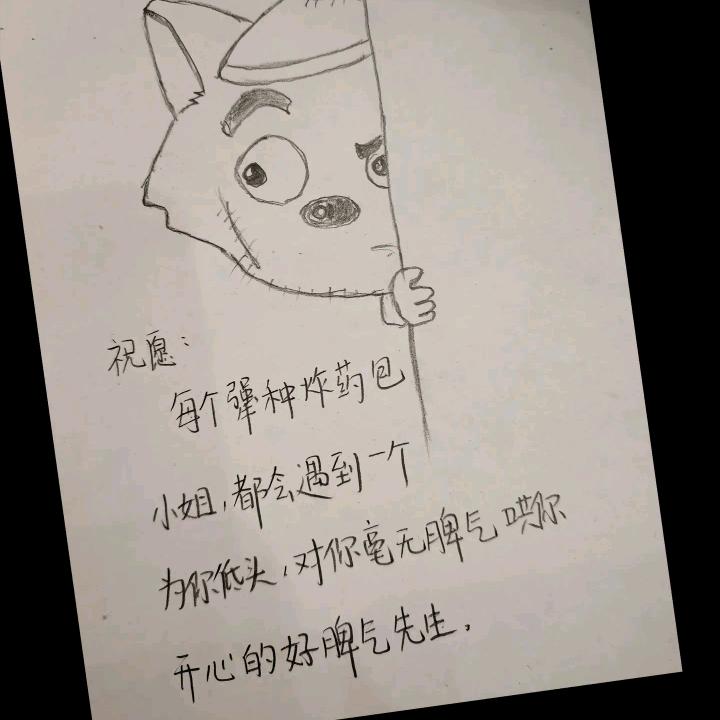 祝愿：
每个犟种炸药包
小姐，都会遇到一个
为你低头，对你毫无脾气哄你
开心的好脾气先生。